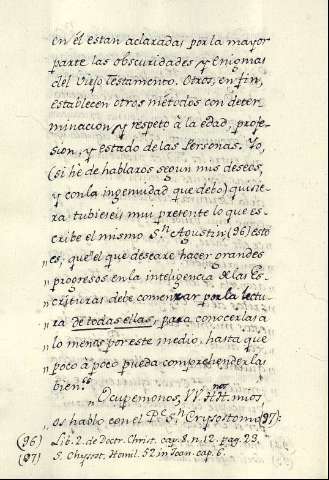 en él estan aclaradas por la mayor
parte las obscuridades y Enigmas
del Viejo Testamento. Otros, en fin,
establecen otros métodos con deter-
minacion y respeto à la edad, profe-
sion, y estado de las Personas. Yo,
(si hé de hablaros segun mis deseos,
y con la ingenuidad que debo) quisie-
ra tubieseis mui presente lo que es-
cribe el mismo Sn. Agustin (96) esto
es, que "el que deseare hacer grandes
„ progresos en la inteligencia de las Es-
„ crituras debe comenzar por la lectu-
„ ra de todas ellas, para conocerlas a
„ lo menos por este medio, hasta que
„ poco à poco pueda comprehenderlas
„ bien."
„ Ocupemonos, VV. HHnos. mios,
„ os hablo con el Pe. Sn. Crysostomo (97):
(96) Lib. 2. de Doctr. Christ. cap. 8. n. 12. pag. 23.
(97) S. Chysost. Homil. 52 in Joan. cap. 6.